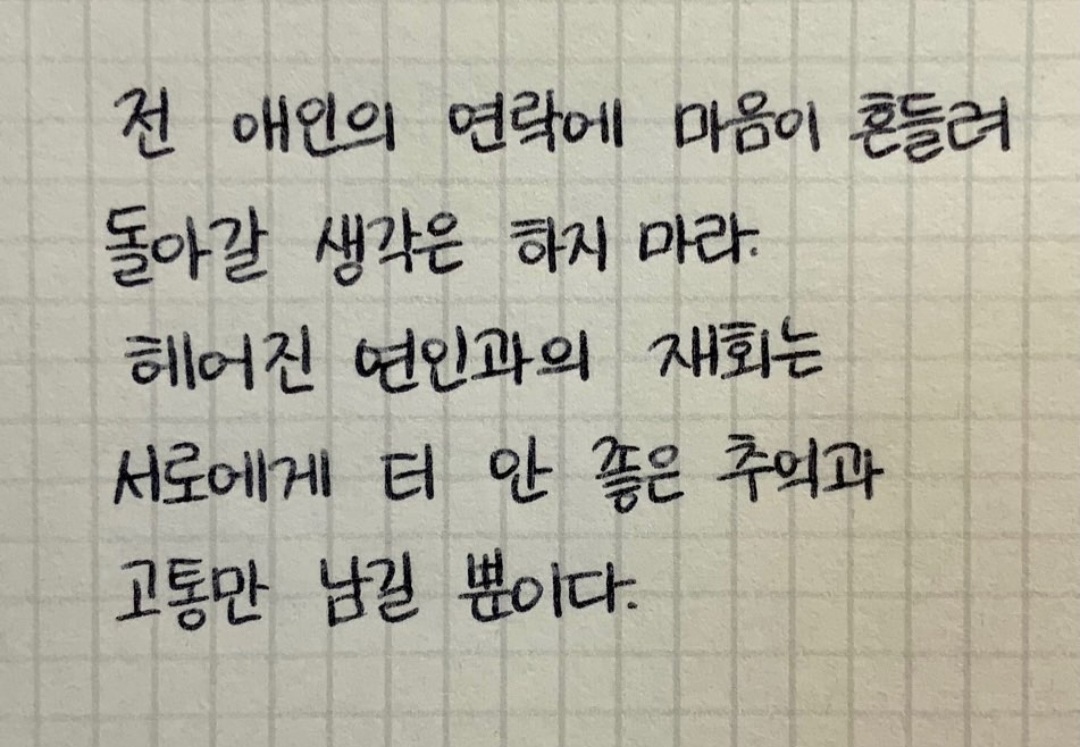 전 애인의 연락에 마음이 흔들려
돌아갈 생각은 하지 마라.
헤어진 연인과의 재회는
서로에게 더 안 좋은 추억과
고통만 남길 뿐이다.